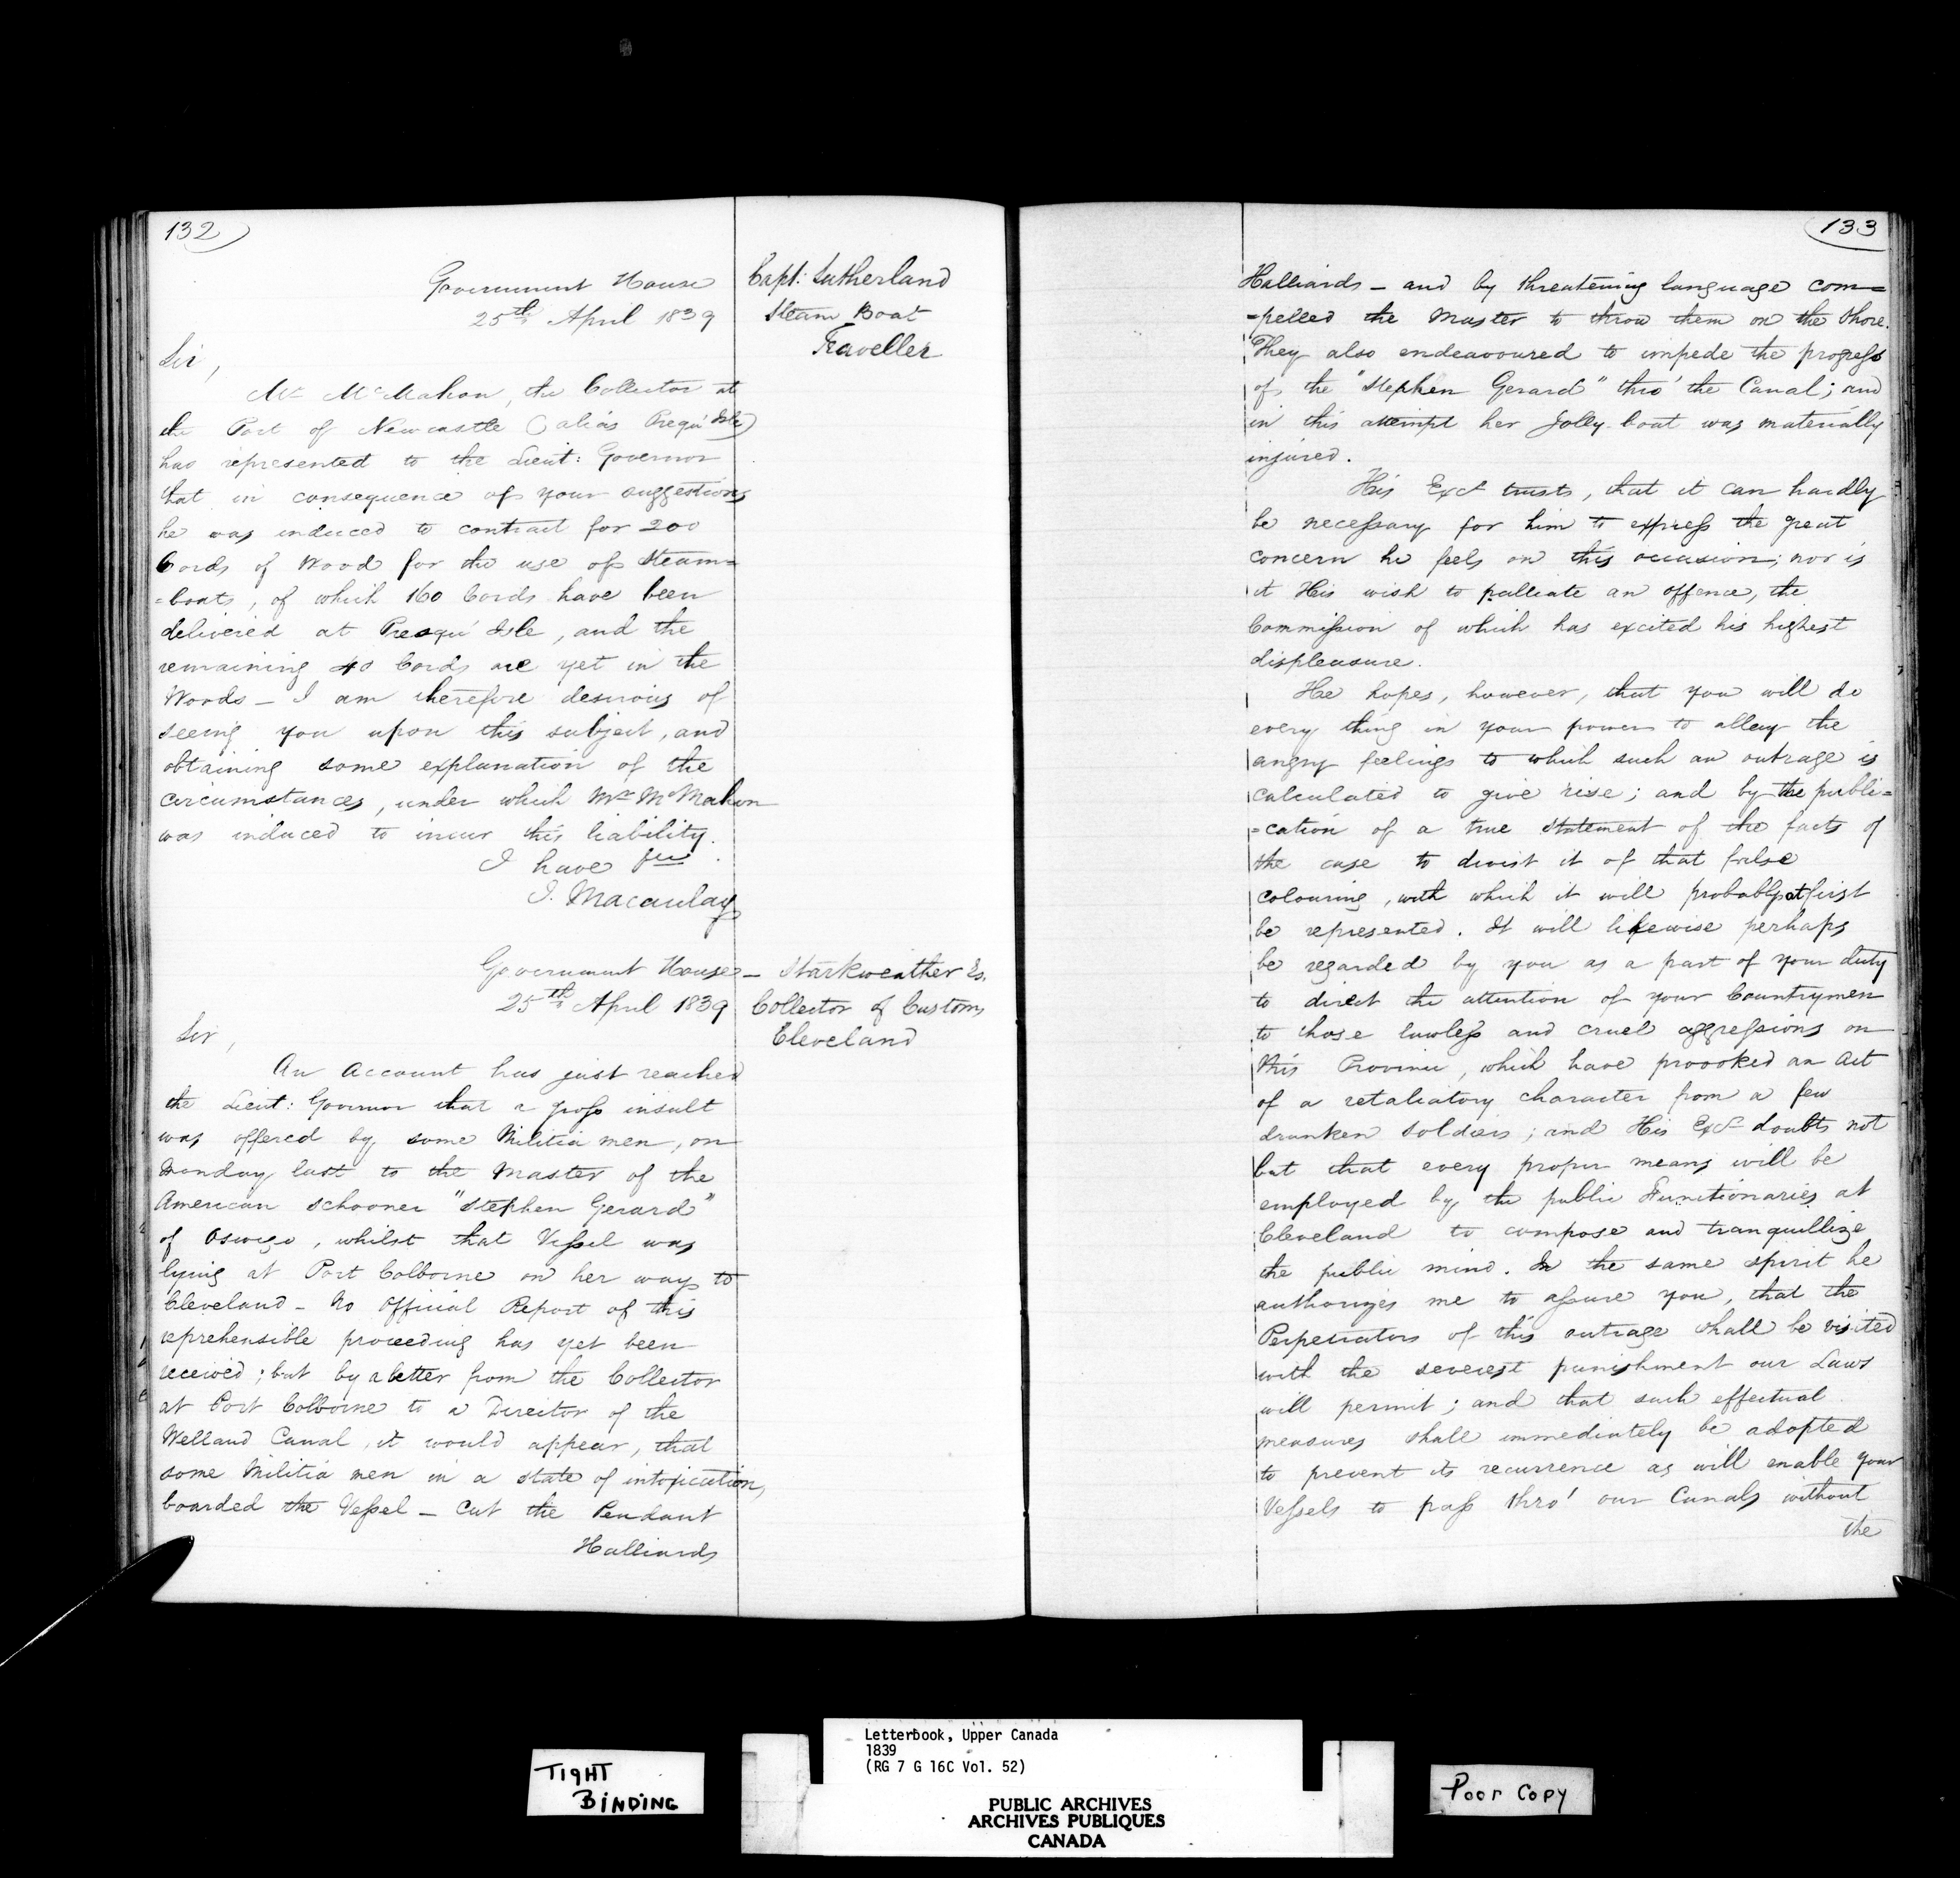 132
Government House
25th April 1839
Capt: Sutherland
Steam Boat
Traveller
Sir,
Mr McMahon, the Collector at
the Port of Newcastle (alias Presqu' Isle)
has represented to the Lieut: Governor
that in consequence of your suggestions
he was induced to contract for 200
Cords of Wood for the use of Steam=
=boats, of which 160 Cords have been
delivered at Presqu' Isle, and the
remaining 40 Cords are yet in the
Woods – I am therefore desirous of
seeing you upon this subject, and
obtaining some explanation of the
circumstances, under which Mr McMahon
was induced to incur this liability.
I have &c
J. Macaulay
Government House
25th April 1839
– Starkweather Es.
Collector of Customs
Cleveland
Sir,
An Account has just reached
the Lieut: Governor that a gross insult
was offered by some Militia men, on
Monday last to the Master of the
American schooner "Stephen Gerard"
of Oswego, whilst that Vessel was
lying at Port Colborne on her way to
Cleveland – No Official Report of this
reprehensible proceeding has yet been
received; but by a letter from the Collector
at Port Colborne to a Director of the
Welland Canal, it would appear, that
some Militia men in a state of intoxication,
boarded the Vessel – Cut the Pendant
Halliards
133
Halliards – and by threatening language com=
=pelled the Master to throw them on the Shore.
They also endeavoured to impede the progress
of the "Stephen Gerard" thro' the Canal; and
in this attempt her Jolly-boat was materially
injured.
His Excy trusts, that it can hardly
be necessary for him to express the great
concern he feels on this occasion; nor is
it His wish to palliate an offence, the
Commission of which has excited his highest
displeasure.
He hopes, however, that you will do
every thing in your power to allay the
angry feelings to which such an outrage is
calculated to give rise; and by the publi=
=cation of a true statement of the facts of
the case to divest it of that false
colouring, with which it will probably at first
be represented. It will likewise perhaps
be regarded by you as a part of your duty
to direct the attention of your Countrymen
to those lawless and cruel aggressions on
this Province, which have provoked an Act
of a retaliatory character from a few
drunken soldiers; and His Excy doubts not
but that every proper means will be
employed by the public Functionaries at
Cleveland to compose and tranquillize
the public mind. In the same spirit he
authorizes me to assure you, that the
Perpetrators of this outrage shall be visited
with the severest punishment our Laws
will permit; and that such effectual
measures shall immediately be adopted
to prevent its recurrence as will enable your
Vessels to pass thro' our Canals without
the
TIGHT
BINDING
Letterbook, Upper Canada
1839
(RG 7 G 16C Vol. 52)
PUBLIC ARCHIVES
ARCHIVES PUBLIQUES
CANADA
Poor Copy